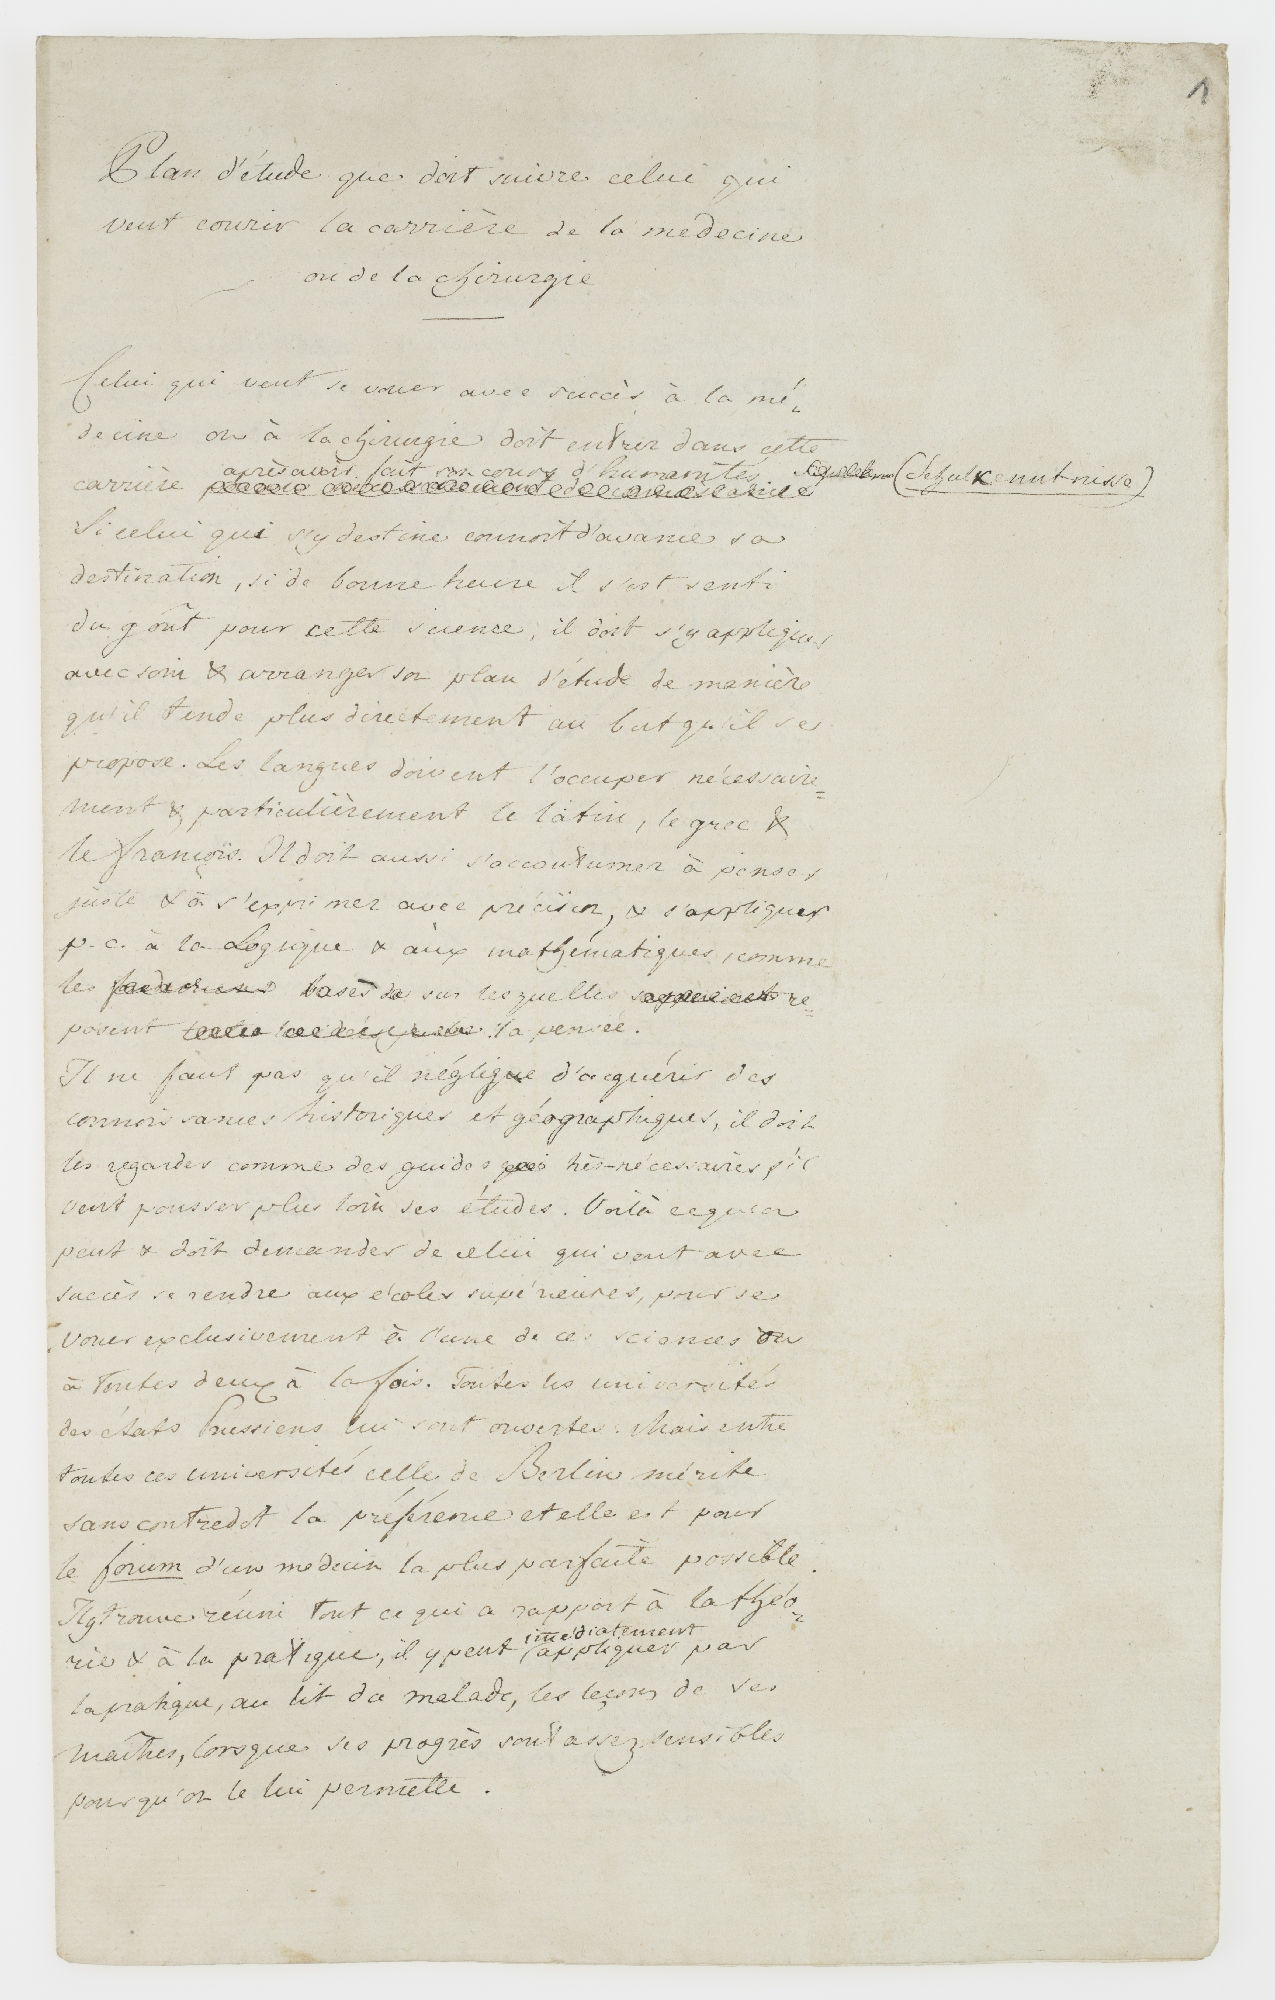 1
Plan d'étude que doit suivre celui qui
veut courir la carrière de la medecine
ou de la chirurgie
Celui qui veut se vouer avec succès à la mé-
decine ou à la chirurgie doit entrer dans cette
après avoir fait son cours d'humanités (Schulkenntnisse)
carrière
Si celui qui s'y destine connoit d'avance sa
destination, si de bonne heure il s'est senti
du goût pour cette science, il doit s'y appliquer
avec soin & arranger son plan d'étude de manière
qu'il tende plus directement au but qu'il se
propose. Les langues doivent l'occuper nécessaire=
ment & particulièrement le latin, le grec &
le françois. Il doit aussi s'accoutumer à penser
juste & à s'exprimer avec précision, & s'appliquer
p. c. à la Logique & aux mathématiques, comme
les bases de sur lesquelles re=
posent la pensée.
Il ne faut pas qu'il néglige d'acquérir des
connoissances historiques et géographiques, il doit
les regarder comme des guides très-nécessaires s'il
veut pousser plus loin ses études. Voilà ce qu'on
peut & doit demander de celui qui veut avec
succès se rendre aux écoles supérieures, pour se
vouer exclusivement à l'une de ces sciences ou
à toutes deux à la fois. Toutes les universités
des états Prussiens lui sont ouvertes. Mais entre
toutes ces universités celle de Berlin mérite
sans contredit la préférence et elle est pour
le forum d'un médecin la plus parfaite possible.
Il y trouve réuni tout ce qui a rapport à la théo-
rie & à la pratique, il y peut immédiatement appliquer par
la pratique, au lit du malade, les leçons de ses
maîtres, lorsque ses progrès sont assez sensibles
pour qu'on le lui permette.